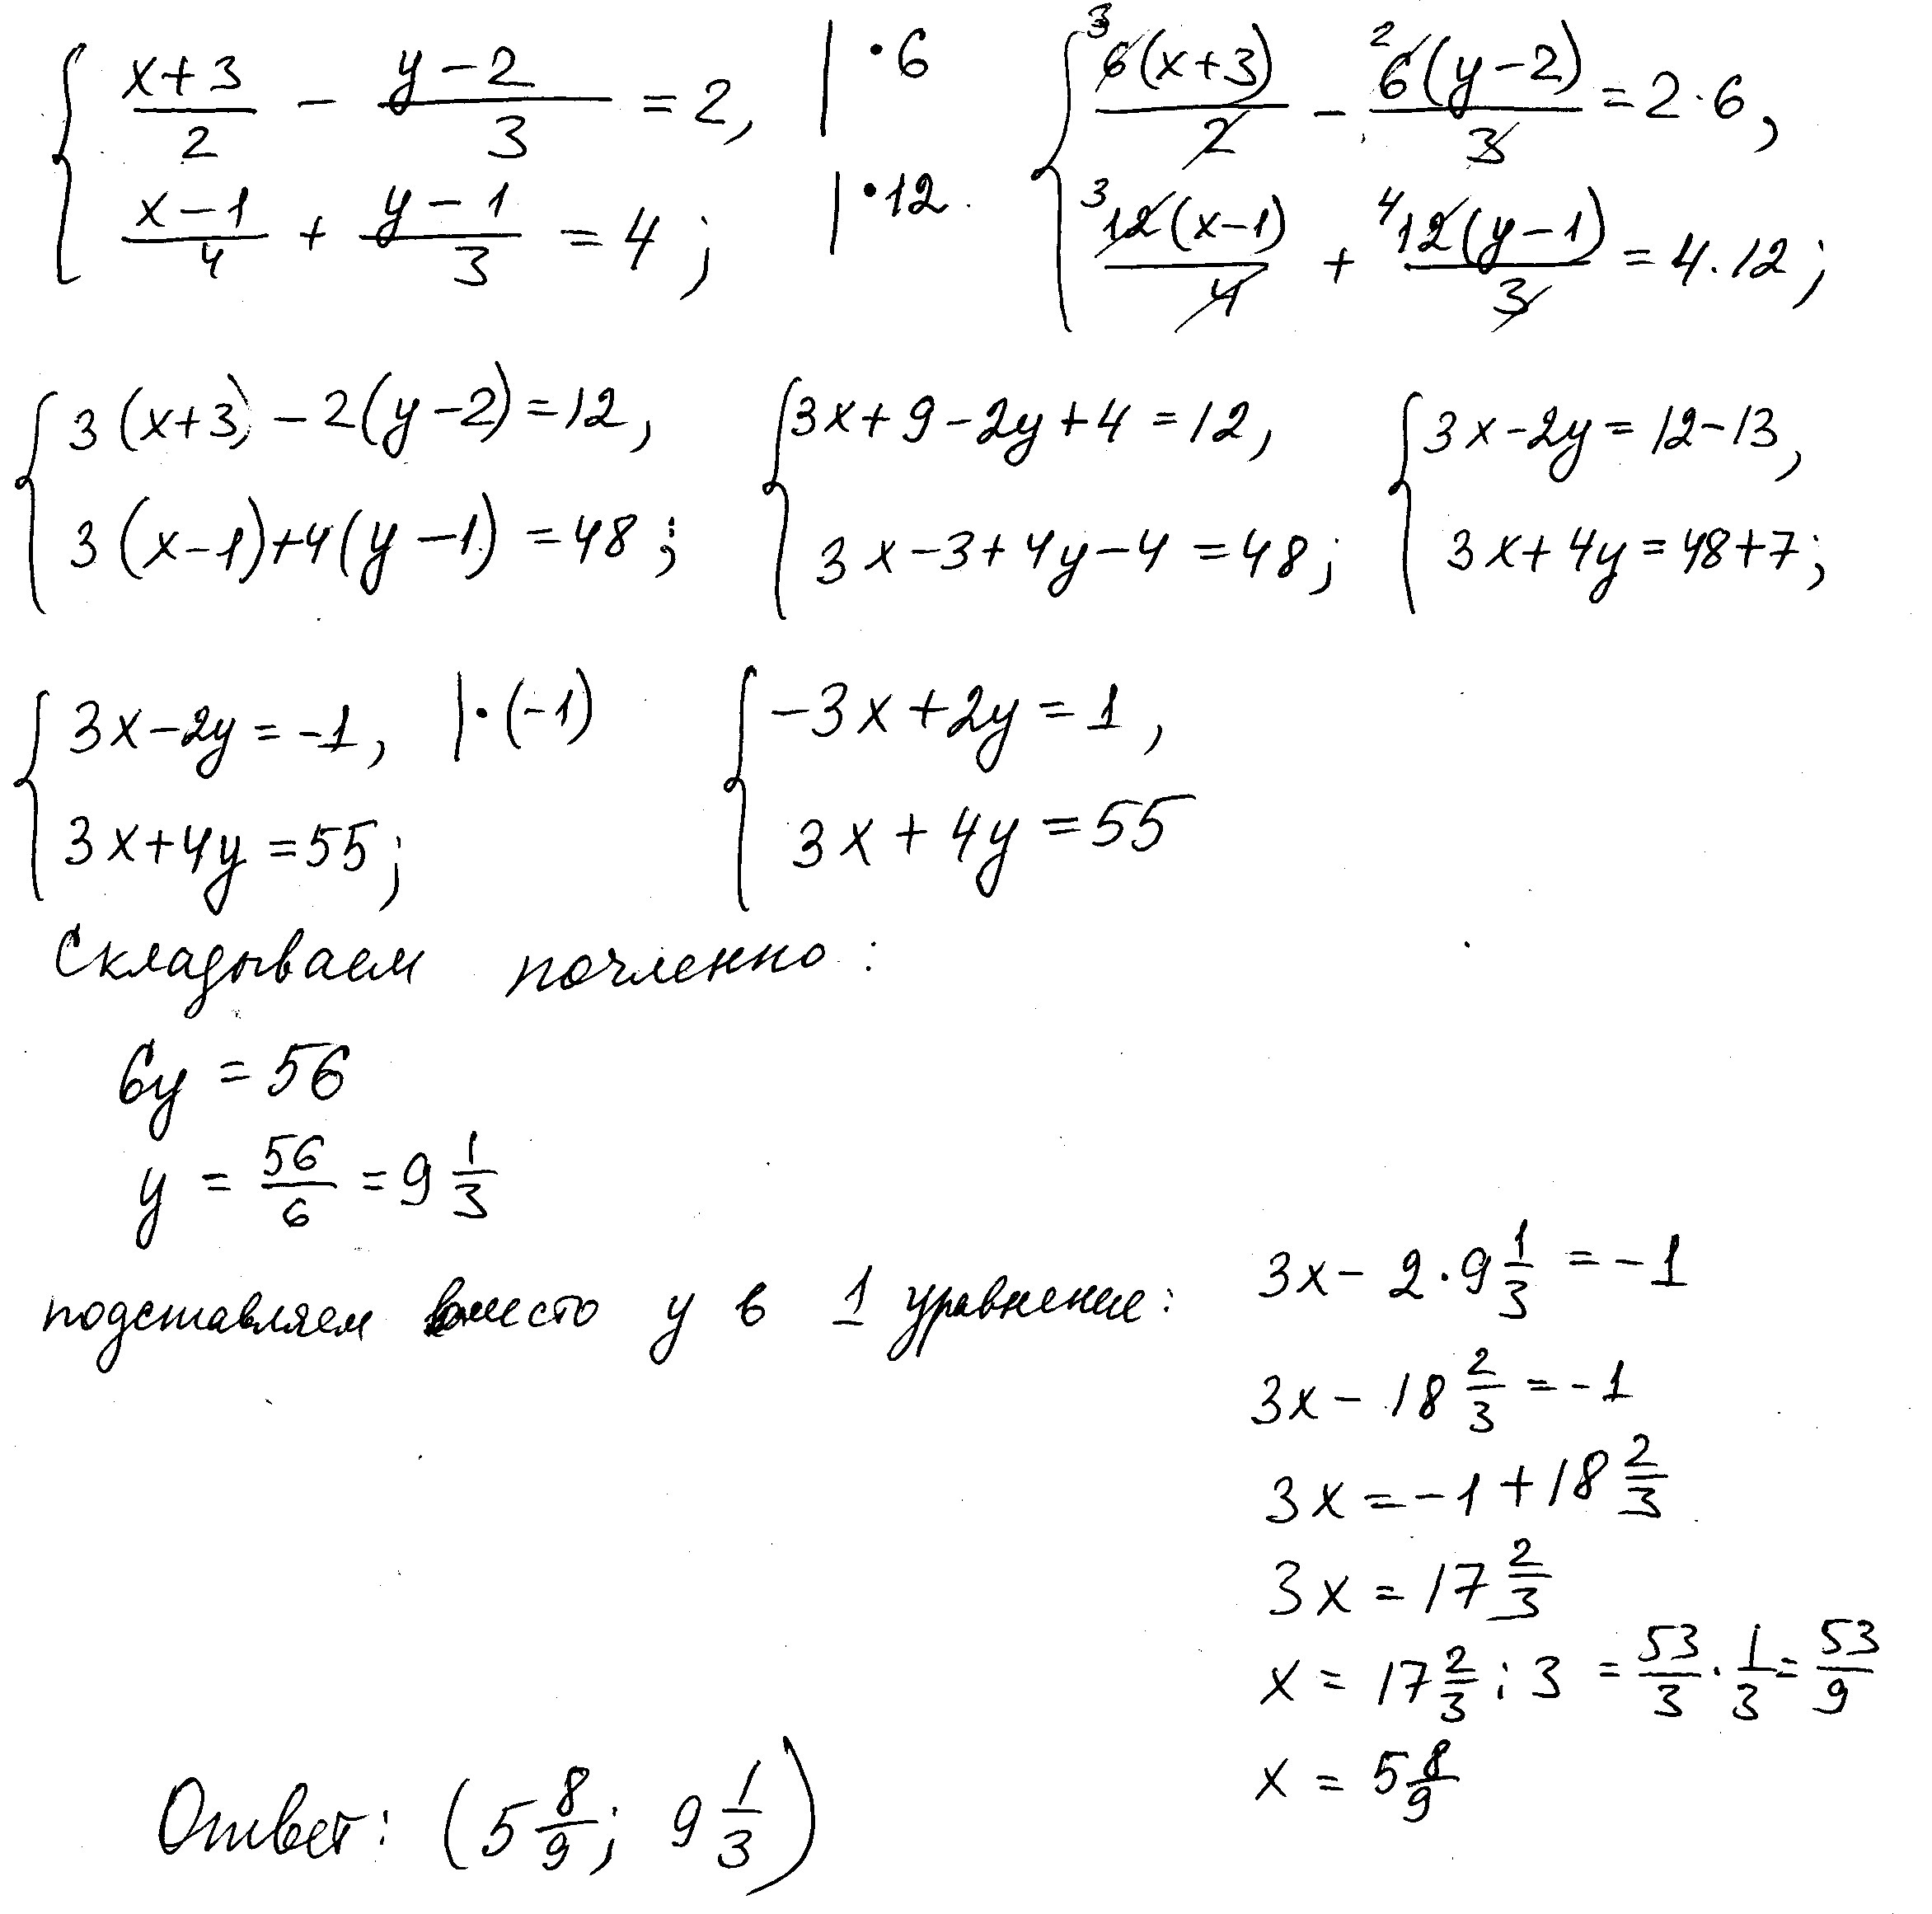 { (x+3)/2 − (y−2)/3 = 2, | · 6
(x−1)/4 + (y−1)/3 = 4; | · 12
{ ³6(x+3)/2 − ²6(y−2)/3 = 2·6,
³12(x−1)/4 + ⁴12(y−1)/3 = 4·12;
{ 3(x+3) − 2(y−2) = 12,
3(x−1)+4(y−1) = 48;
{ 3x+9−2y+4 = 12,
3x−3+4y−4 = 48;
{ 3x−2y = 12−13,
3x+4y = 48+7;
{ 3x−2y = −1, | · (−1)
3x+4y = 55;
{ −3x+2y = 1,
3x+4y = 55
Складываем почленно:
6y = 56
y = 56/6 = 9 1/3
подставляем вместо y в 1 уравнение:
3x − 2·9 1/3 = −1
3x − 18 2/3 = −1
3x = −1 + 18 2/3
3x = 17 2/3
x = 17 2/3 : 3 = 53/3 · 1/3 = 53/9
x = 5 8/9
Ответ: (5 8/9; 9 1/3)